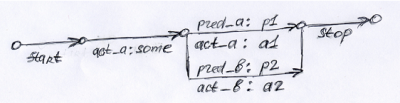 start
act_a: some
pred_a: p1
act_a: a1
pred_b: p2
act_b: a2
stop